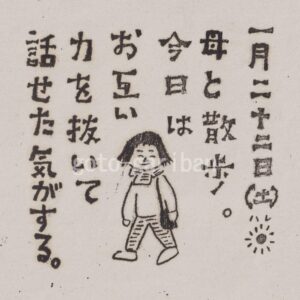 一月二十二日(土)
母と散歩。
今日は
お互い
力を抜いて
話せた気がする。